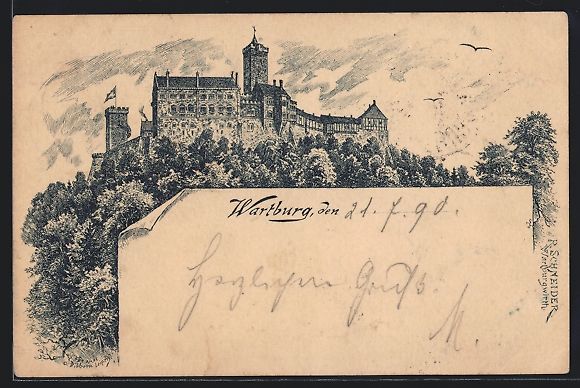 Wartburg, den 21.7.90.
Herzlichen Gruß.
M.
P. SCHNEIDER
Wartburgwirth